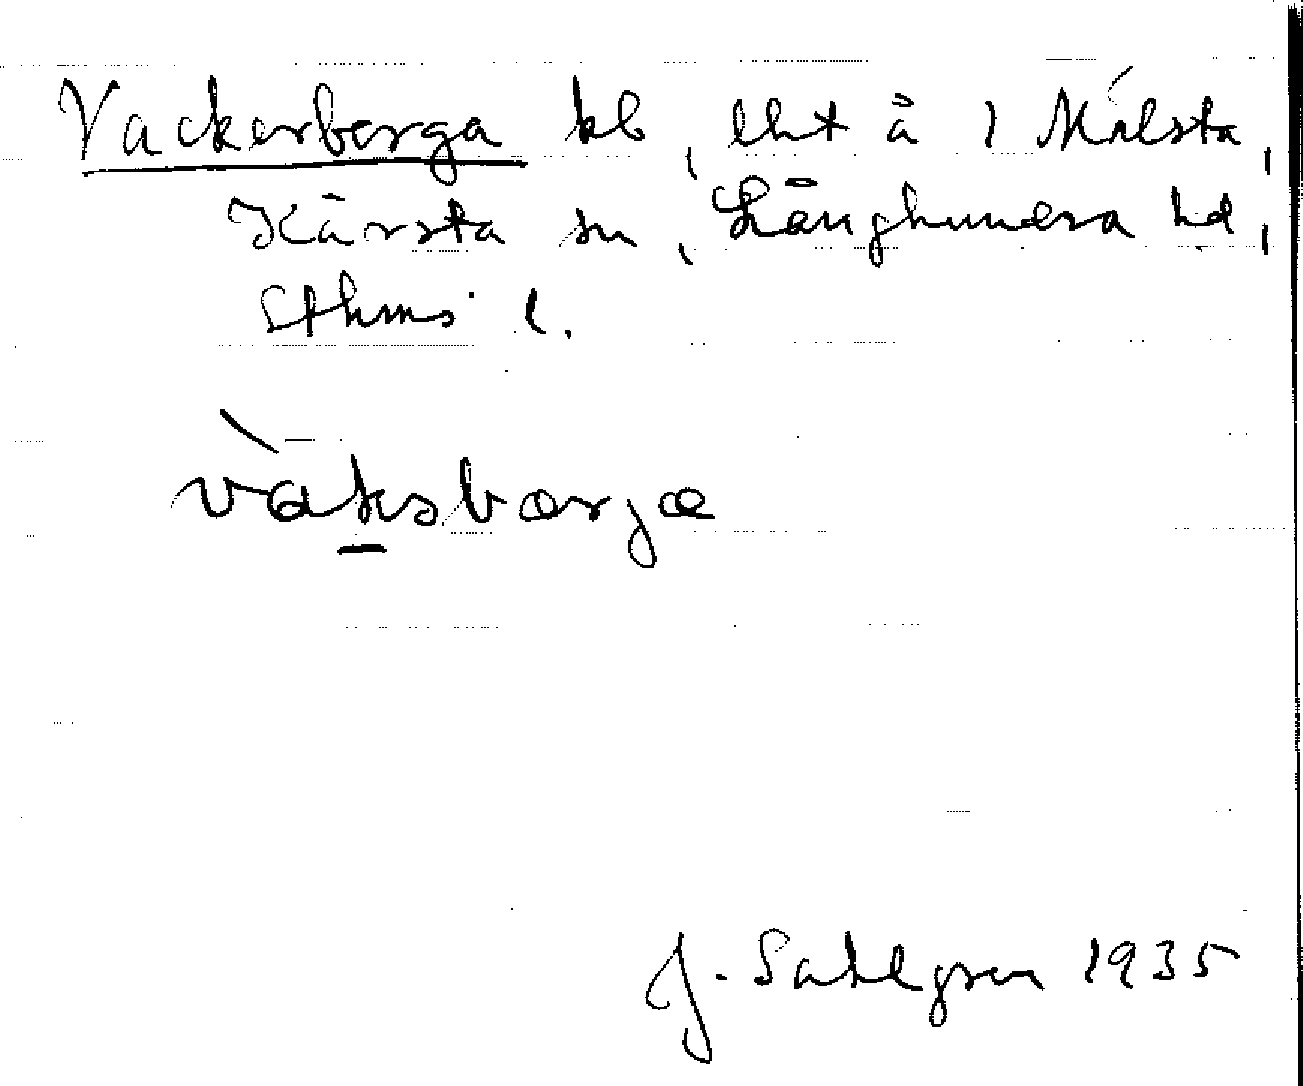 Vackerberga kb, lht å 1 Målsta,
Kårsta sn, Långhundra hd,
Sthms l.
J. Sahlgren 1935